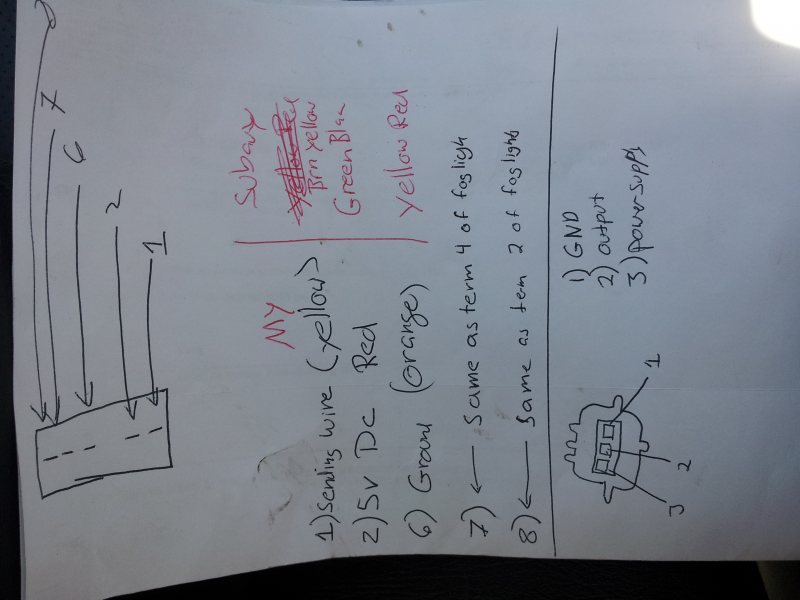 8
7
6
2
1
My Subaru
Yellow Red
1) Sending wire (yellow) Brn Yellow
2) 5v DC Red Green Blac
6) Ground (orange) Yellow Red
7) ← Same as term 4 of fogligh
8) ← Same as term 2 of foglights
1) GND
2) output
3) power supply
1
2
3